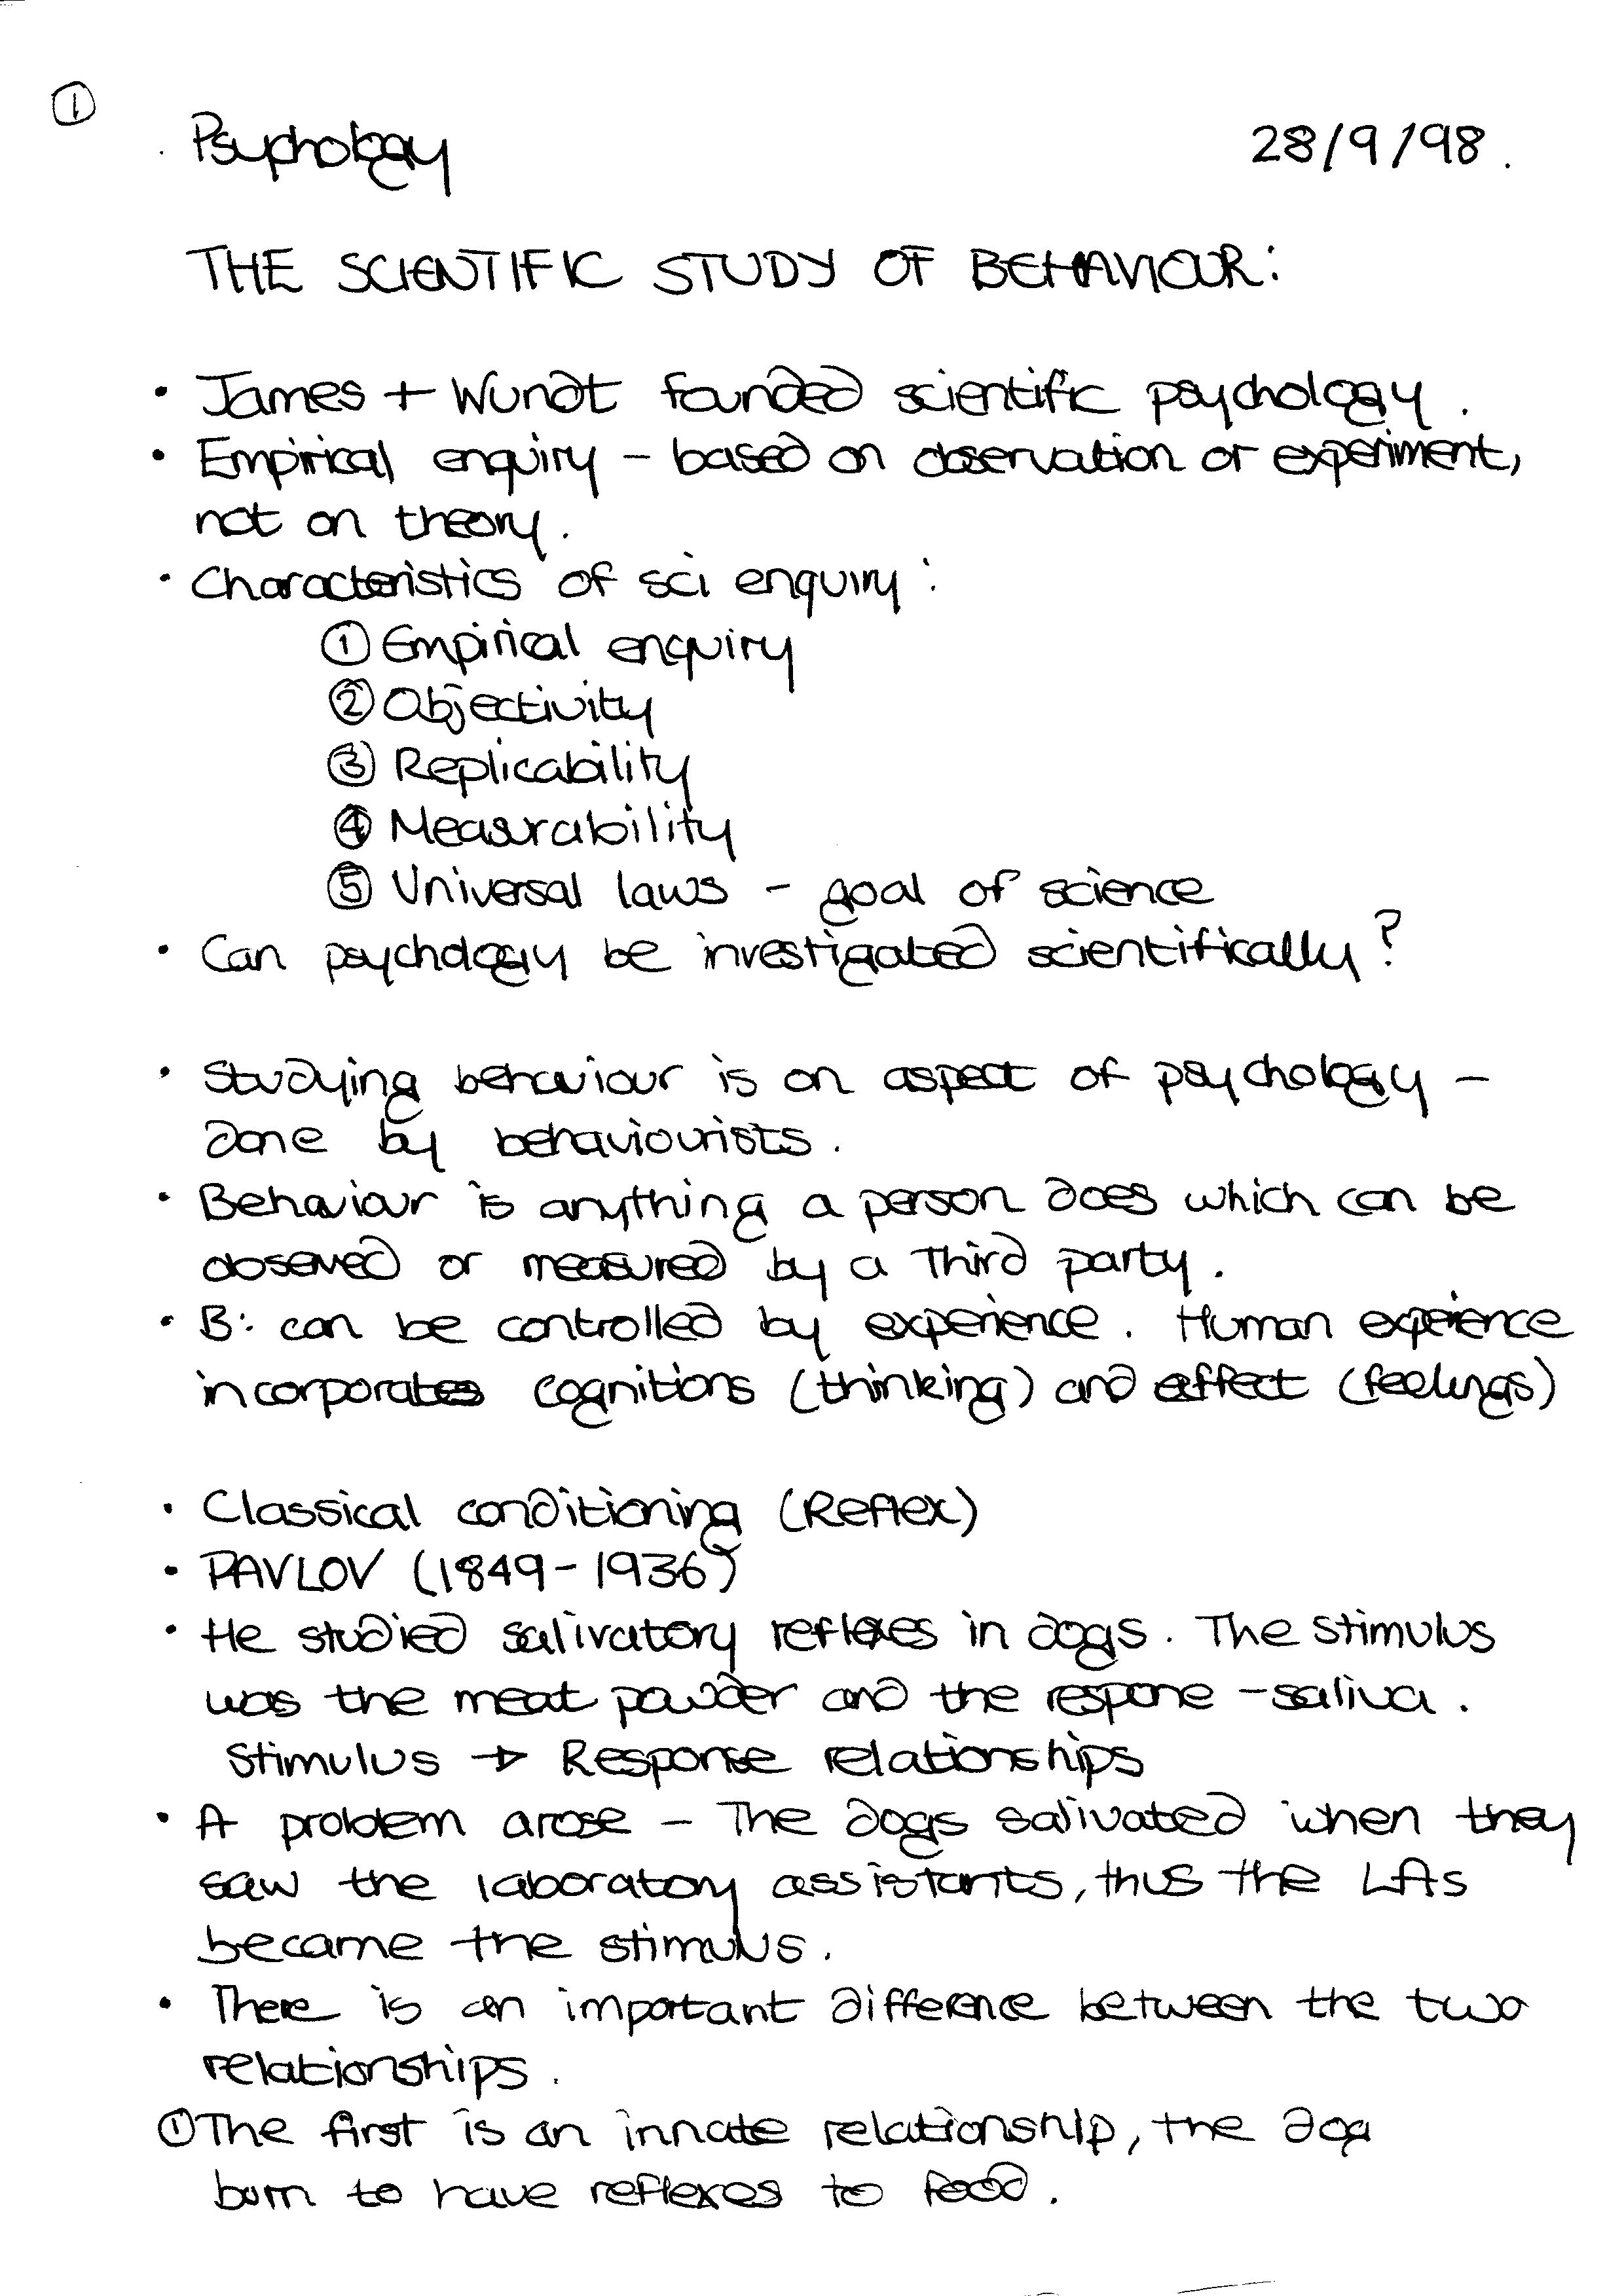 ①
Psychology 28/9/98.
THE SCIENTIFIC STUDY OF BEHAVIOUR:
• James + Wundt founded scientific psychology.
• Empirical enquiry - based on observation or experiment,
not on theory.
• Characteristics of sci enquiry:
① Empirical enquiry
② Objectivity
③ Replicability
④ Measurability
⑤ Universal laws - goal of science
• Can psychology be investigated scientifically?
• Studying behaviour is an aspect of psychology -
done by behaviourists.
• Behaviour is anything a person does which can be
observed or measured by a third party.
• B: can be controlled by experience. Human experience
incorporates cognitions (thinking) and affect (feelings)
• Classical conditioning (Reflex)
• PAVLOV (1849-1936)
• He studied salivatory reflexes in dogs. The stimulus
was the meat powder and the respone - saliva.
Stimulus → Response relationships
• A problem arose - The dogs salivated when they
saw the laboratory assistants, thus the LAs
became the stimulus.
• There is an important difference between the two
relationships.
① The first is an innate relationship, the dog
born to have reflexes to food.